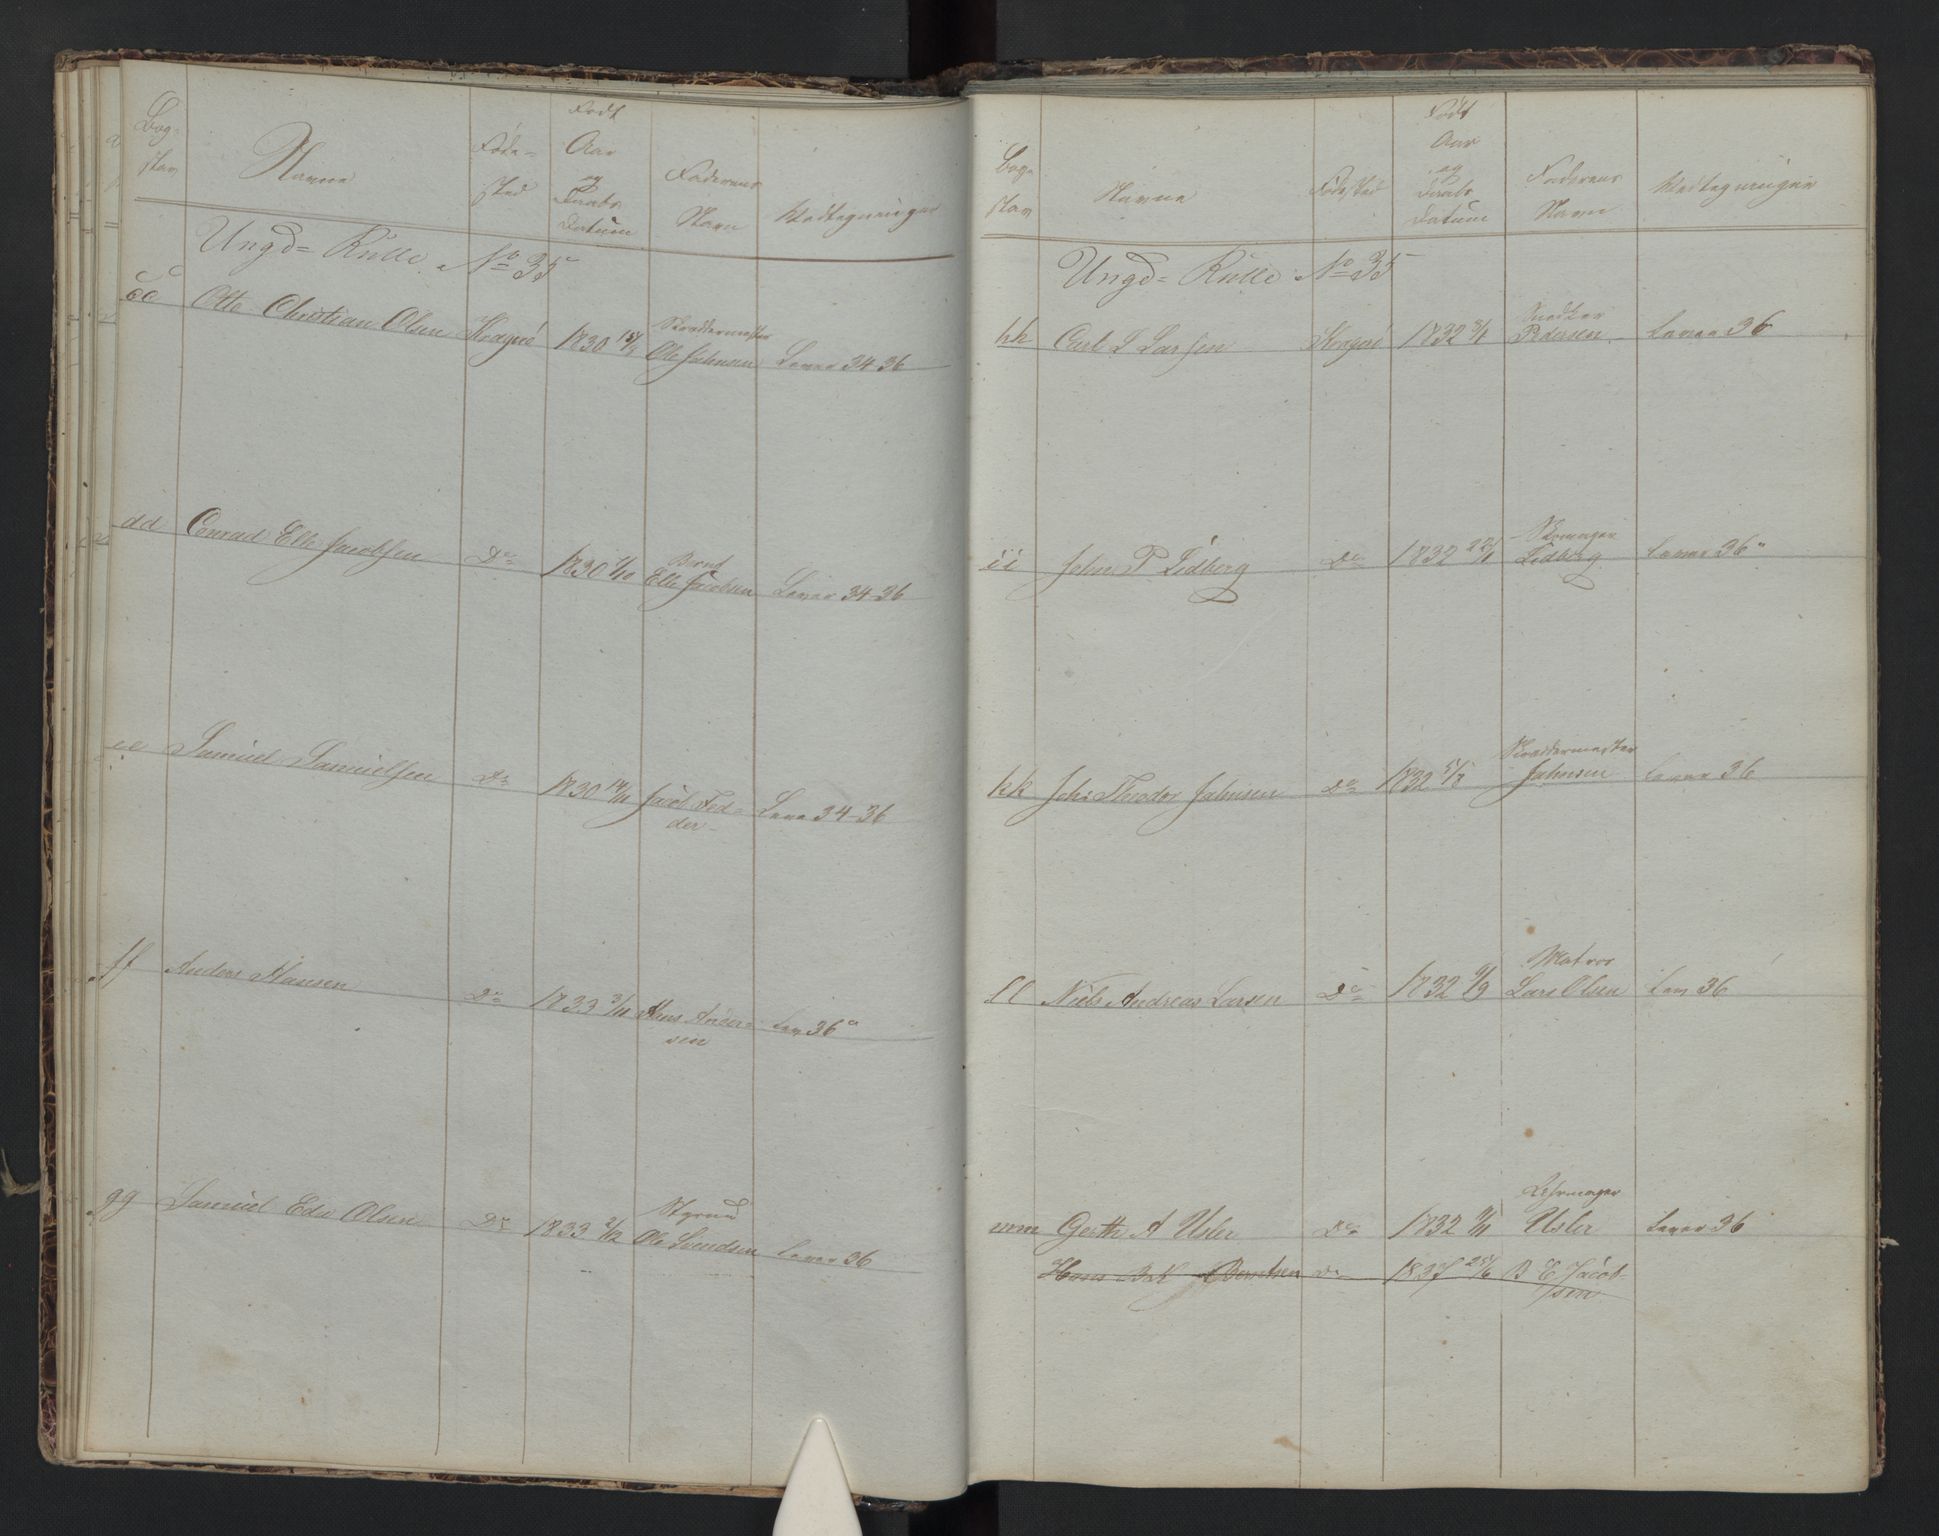 Bog-
stav
Navne
Føde-
sted
Født
Aar
og
Daabs
Datum
Faderens
Navn
Vedtegninger
Ungd= Rulle No 35
cc Otto Christian Olsen Kragerö 1830 Skreddermester Ole Johnsen Lever 34-36
dd Conrad Elle Jacobsen Do 1830 1/10 Bernt Elle Jacobsen Lever 34-36
ee Samuel Samuelsen Do 1830 14/11 Lever 34-36
ff Anders Hansen Do 1833 3/11 Hans Ander-
sen Lev 36"
gg Samuel Edv Olsen Do 1833 2/12 Ole Svendsen Lever 36
Bog-
stav
Navne
Fødested
Født
Aar
og
Daabs
Datum
Faderens
Navn
Vedtegninger
Ungd= Rulle No 35
hh Carl L Larsen Kragerö 1832 Snedker Pedersen Lever 36
ii John P Lidberg Do 1832 22/1 Skomager Lidberg Lever 36"
kk Johs Theodor Johnsen Do 1832 5/3 Skreddermester Johnsen Lever 36
ll Niels Andreas Larsen Do 1832 9/9 Matros Lars Olsen Lev 36
mm Gerth A Usler Do 1832 Usler Lever 36
Hans Berntsen Do 1837 25/6 B E Jacob-
sen